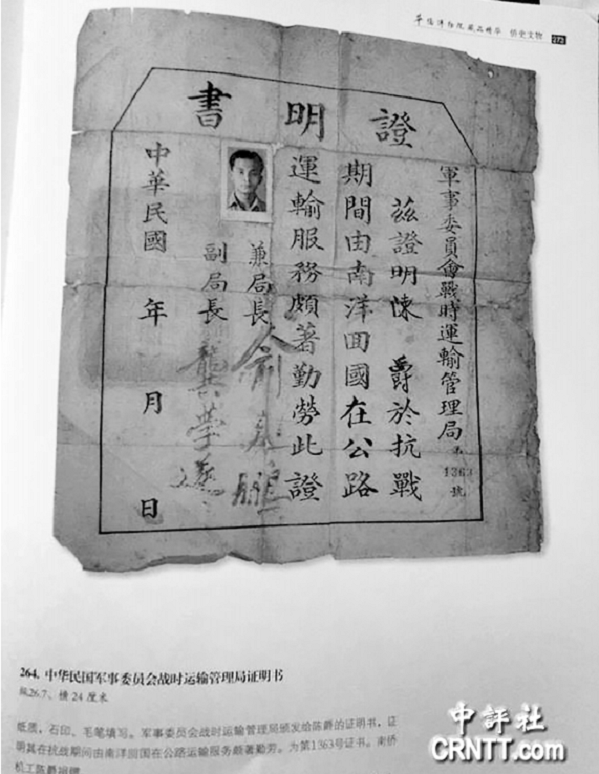 華僑博物院藏品精华 侨史文物 273
證明書
軍事委員會戰時運輸管理局 第1363號
茲證明陳 爵於抗戰
期間由南洋囬國在公路
運輸服務頗著勤勞此證
兼局長 俞飛鵬
副局長 龔學遂
中華民國 年 月 日
264. 中华民国军事委员会战时运输管理局证明书
纵26.7、横24厘米
纸质，石印、毛笔填写。军事委员会战时运输管理局颁发给陈爵的证明书，证
明其在抗战期间由南洋回国在公路运输服务颇著勤劳。为第1363号证书。南侨
机工陈爵捐赠
中評社
CRNTT.com